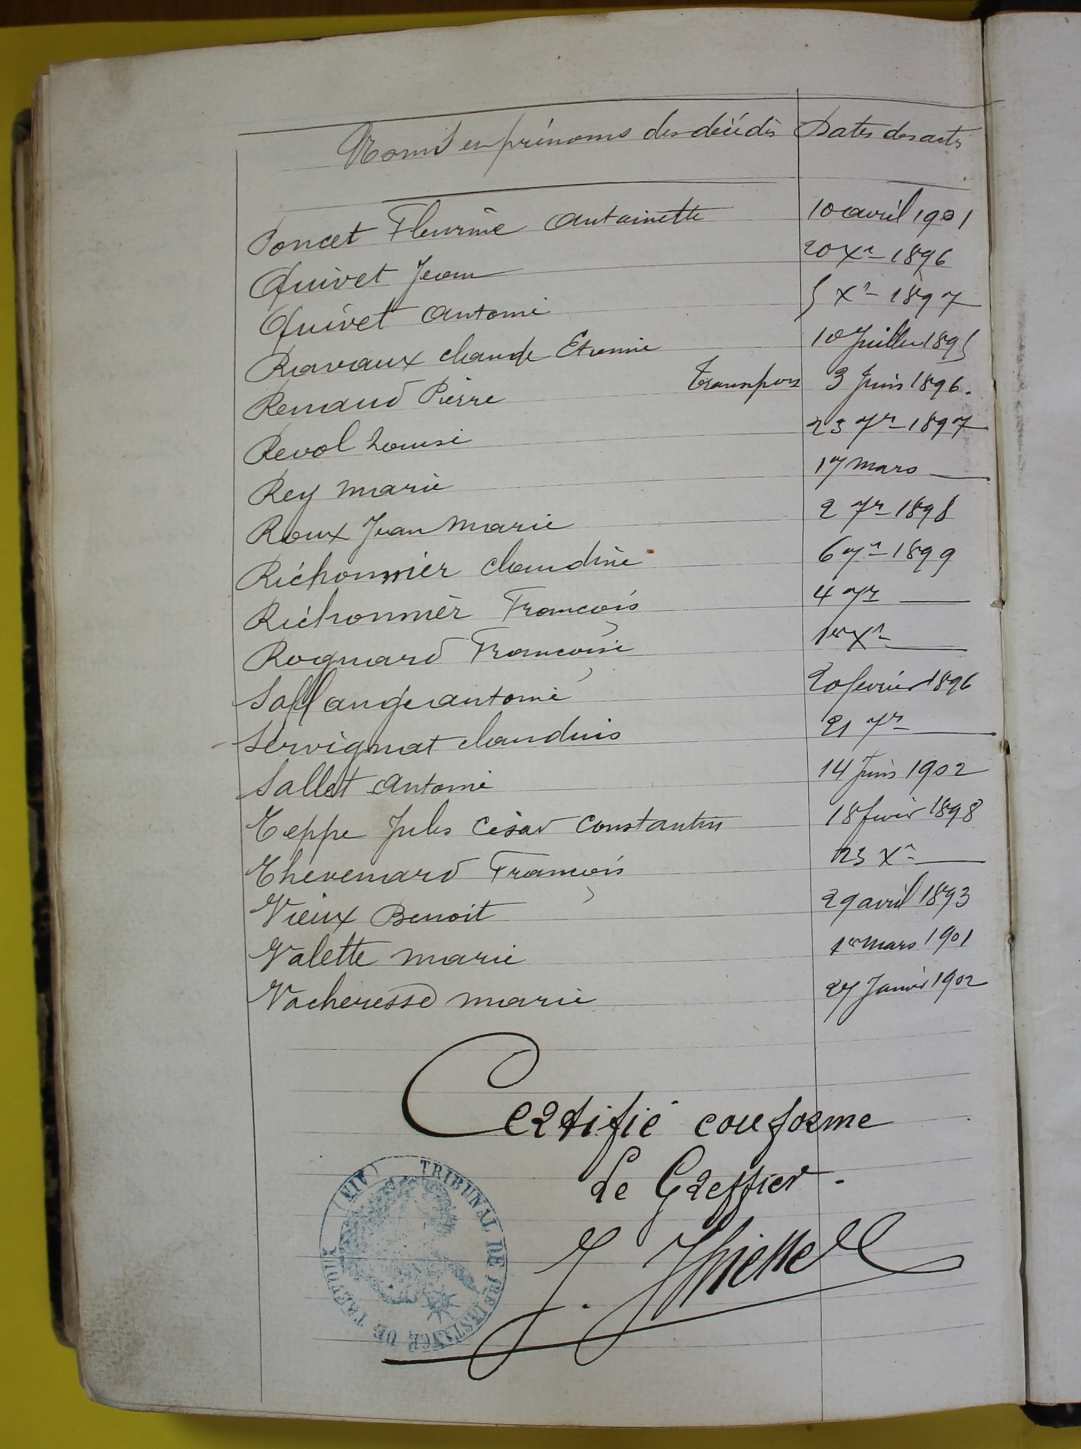 Noms et prénoms des décédés Dates des actes
Poncet Fleurine Antoinette 10 avril 1901
Quivet Jean 20 Xre 1896
Quivet Antoine 5 Xre 1897
Ravaux Claude Etienne 10 Juillet 1895
Renaud Pierre Transport 3 Juin 1896.
Revol Louise 23 7re 1897
Rey Marie 17 mars —
Roux Jean Marie 2 7re 1898
Richonnier Claudine 6 7re 1899
Richonnier François 4 7re —
Rognard Françoise 1er Xre —
Sallange Antoine 20 février 1896
Servignat Claudius 21 7re —
Sallet Antoine 14 Juin 1902
Teppe Jules César Constantin 18 févier 1898
Thevenard François 23 Xre —
Vieux Benoit 29 avril 1893
Valette Marie 1er mars 1901
Vacheresse Marie 27 Janvier 1902
Certifié conforme
Le Greffier.
TRIBUNAL DE 1RE INSTANCE DE TREVOUX (AIN)